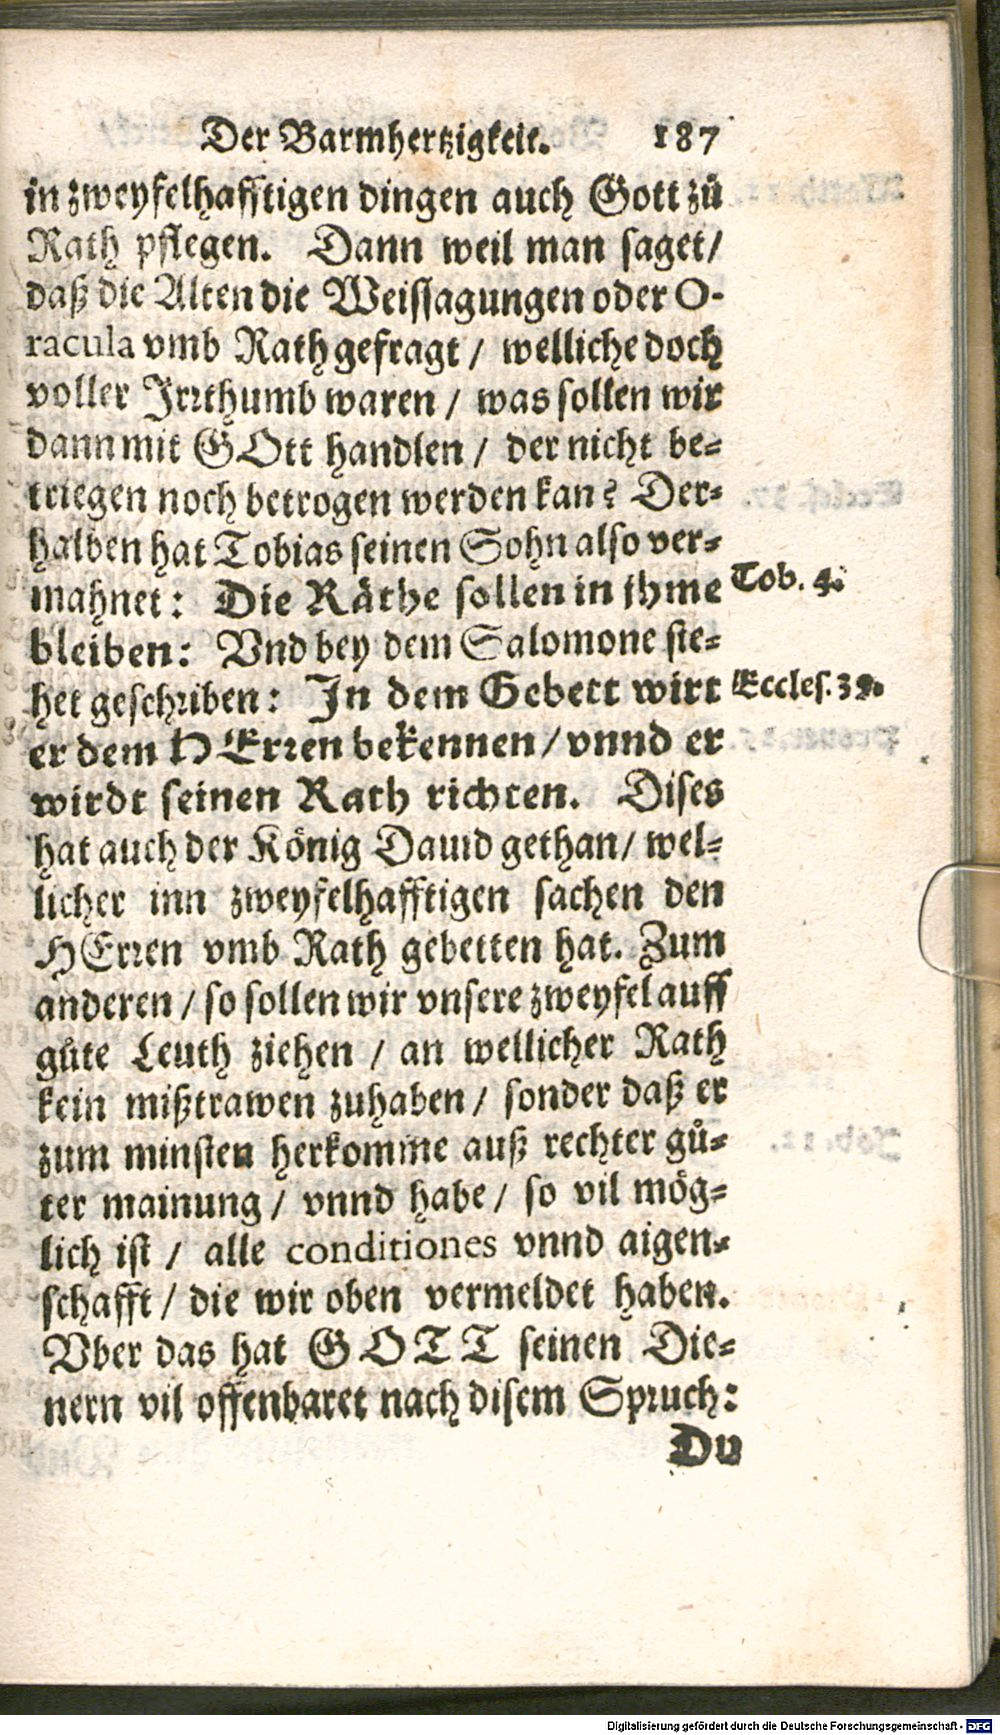 Der Barmhertzigkeit. 187
in zweyfelhafftigen dingen auch Gott zů
Rath pflegen. Dann weil man saget/
daß die Alten die Weissagungen oder O-
racula vmb Rath gefragt / welliche doch
voller Irrthumb waren / was sollen wir
dann mit GOtt handlen / der nicht be-
triegen noch betrogen werden kan? Der-
halben hat Tobias seinen Sohn also ver-
mahnet: Die Räthe sollen in jhme
Tob. 4.
bleiben: Vnd bey dem Salomone ste-
het geschriben: In dem Gebett wirt
Eccles. 39.
er dem HErren bekennen/ vnnd er
wirdt seinen Rath richten. Dises
hat auch der König Dauid gethan/ wel-
licher inn zweyfelhafftigen sachen den
HErren vmb Rath gebetten hat. Zum
anderen / so sollen wir vnsere zweyfel auff
gůte Leuth ziehen / an wellicher Rath
kein mißtrawen zuhaben / sonder daß er
zum minsten herkomme auß rechter gů-
ter mainung / vnnd habe / so vil mög-
lich ist / alle conditiones vnnd aigen-
schafft / die wir oben vermeldet haben.
Vber das hat GOTT seinen Die-
nern vil offenbaret nach disem Spruch:
Du
Digitalisierung gefördert durch die Deutsche Forschungsgemeinschaft - DFG